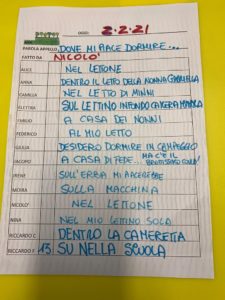 OGGI: 2.2.21
PAROLA APPELLO DOVE MI PIACE DORMIRE...
FATTO DA NICOLO'
ALICE NEL LETTONE
ANNA DENTRO IL LETTO DELLA NONNA GABRIELLA
CAMILLA NEL LETTO DI MINNI
ELETTRA SUL LETTINO IN FONDO CAMERA MAMMA
EMILIO A CASA DEI NONNI
FEDERICO AL MIO LETTO
GIULIA DESIDERO DORMIRE IN CAMPEGGIO
JACOPO A CASA DI FEDE... MA C'È IL
BRUTTISSIMO SOLE!
IRENE SULL'ERBA MI PIACEREBBE
MOIRA SULLA MACCHINA
NICOLO' NEL LETTONE
NINA NEL MIO LETTINO SOLA
RICCARDO C DENTRO LA CAMERETTA
RICCARDO F 13. SU NELLA SCUOLA